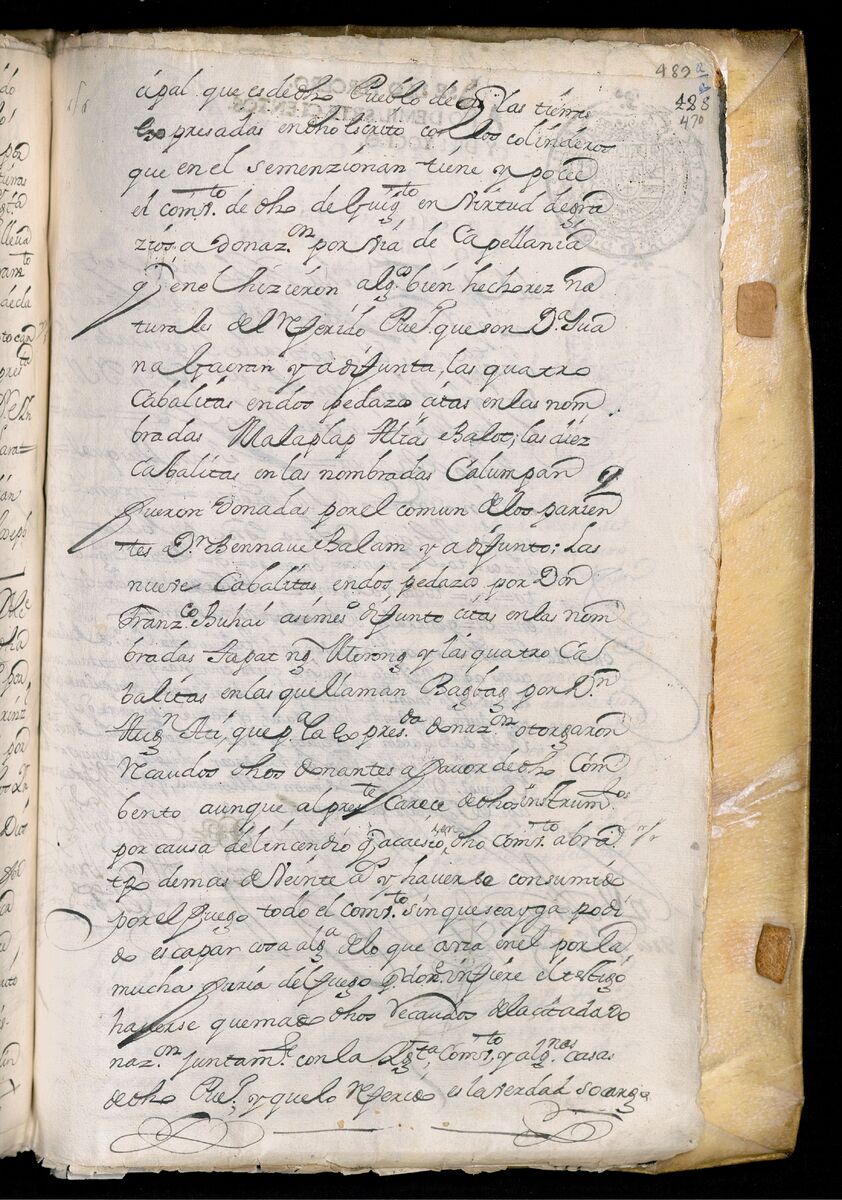 489
488
470
cipal que es de dho Pueblo de las tierras
expresadas en dho escrito con los colinderos
que en el se menzionan tiene y poceé
el comto. de dho de Guigto en Virtud de gra
ziosa Donazon. por via de Capellania
q en el hizieron algs bien hechorez na
turales del referido Pueo. que son Da Jua
na ya difunta, las quatro
Cabalitas en dos pedazos citas en las nom
bradas Malaplap Alias Balot; las diez
Cabalitas en las nombradas Calumpan q
fueron Donadas por el comun de los parien
tes a Dn Bennaue Balam ya difunto; Las
nueve Cabalitas en dos pedazos por Don
Franzco Buhai asimeso difunto citas en las nom
bradas Sapat ng y las quatro Ca
balitas en las que llaman Bagbag por Dn
Augn Ati, que pa la expresda donazon. otorgaron
recaudos dhos donantes a favor de dho Com
bento aunque al preste carece de dhos instrumtos
por causa del incendio q acaeció en dho comto abrá
tpo de mas de veinte as y haverse consumido
por el fuego todo el comto. sin que se ayga podi
do escapar cosa alga de lo que avia en el por la
mucha furia del fuego, q dore. infiere el testigo
haverse quemado dhos recaudos de la citada do
nazon. juntamte con la Igta, Comto. y algnos casas
de dho Pueo, y que lo referido es la verdad so carga